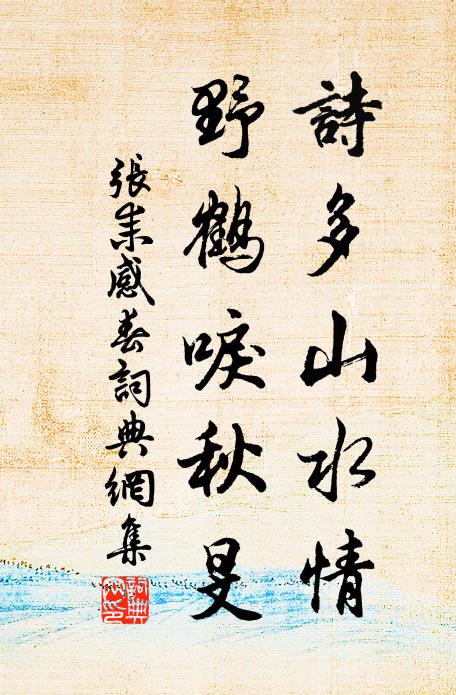 詩多山水情
野鶴唳秋旻
張耒感春詞典網集
詞典